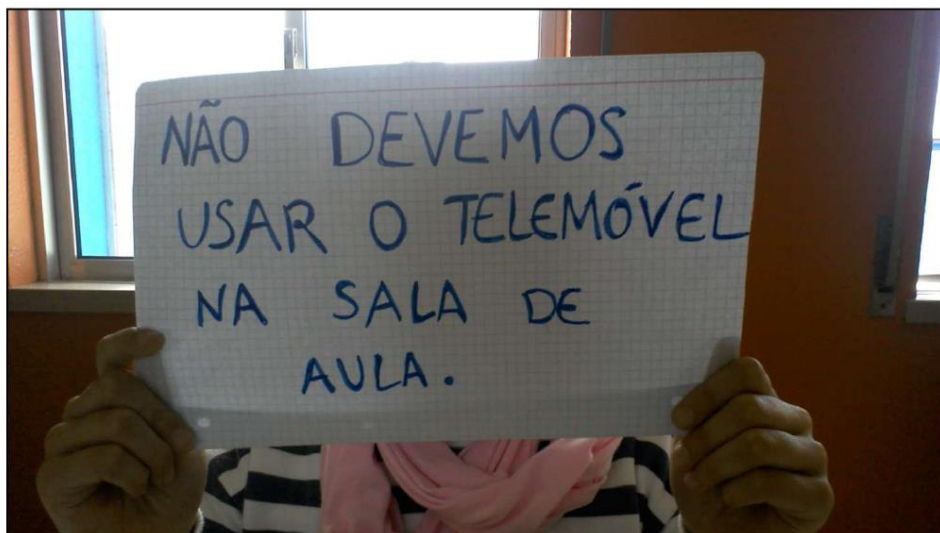 NÃO DEVEMOS
USAR O TELEMÓVEL
NA SALA DE
AULA.